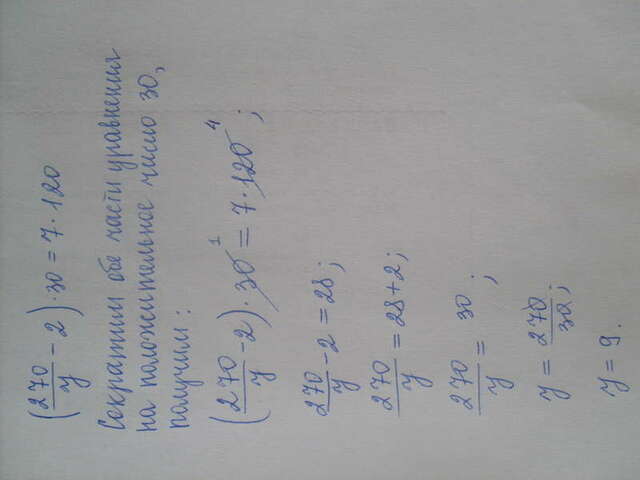 (270/y - 2) · 30 = 7 · 120
Сократим обе части уравнения
на положительное число 30,
получим:
(270/y - 2) · 30 1 = 7 · 120 4 ;
270/y - 2 = 28;
270/y = 28+2;
270/y = 30 ;
y = 270/30;
y = 9.